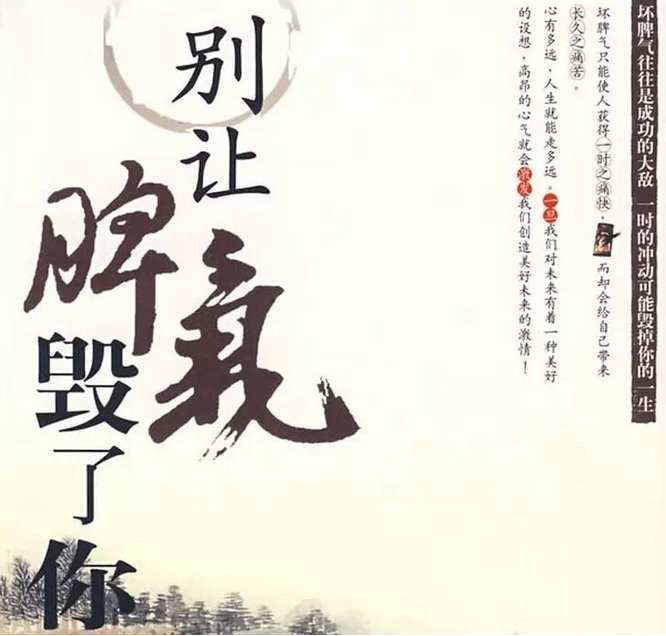 坏脾气往往是成功的大敌 一时的冲动可能毁掉你的一生
坏脾气只能使人获得一时之痛快，而却会给自己带来
长久之痛苦。
心有多远，人生就能走多远。一旦我们对未来有着一种美好
的设想，高昂的心气就会激发我们创造美好未来的激情！
别让
脾氣
毁了你